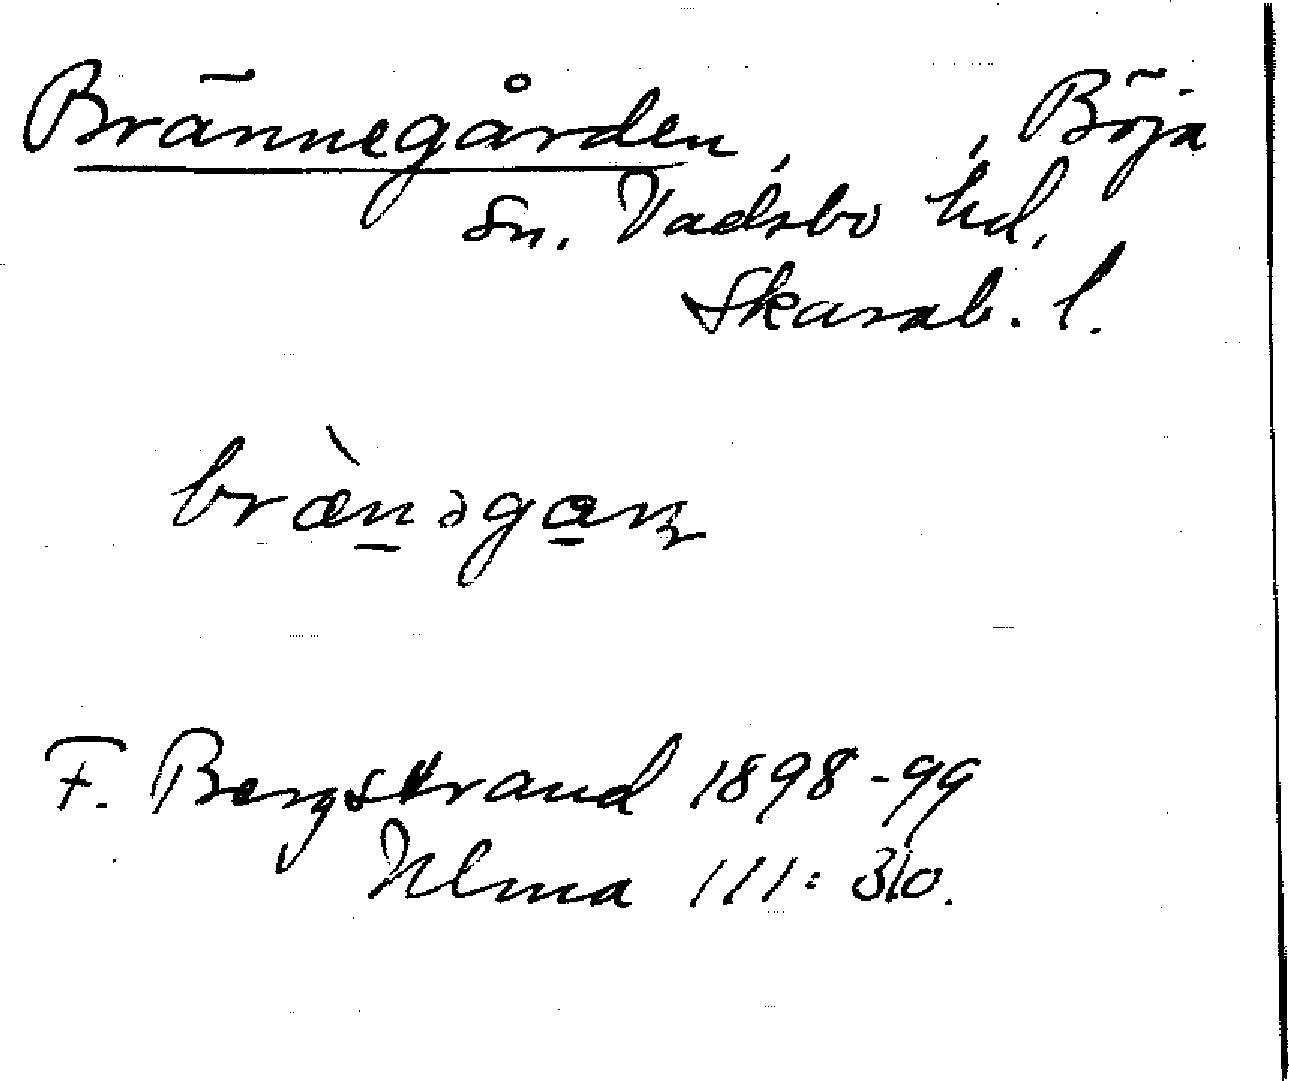 Brännegården, , Böja
Sn. Vadsbo hd,
Skarab. l.
bræ̀nəgan
F. Bergstrand 1898-99
Ulma 111: 310.